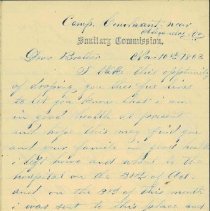 Camp Convalescent near
Alexandria Va
Sanitary Commission,
Dear Brother Nov 10th 1863
I take this opportunity
of droping you this few lines
to let you know that I am
in good health at present
and hope this may find you
and your family in good health
I left here and went to the
hospital on the 24th of Oct.
and on the 9th of this month
I was sent to this place and